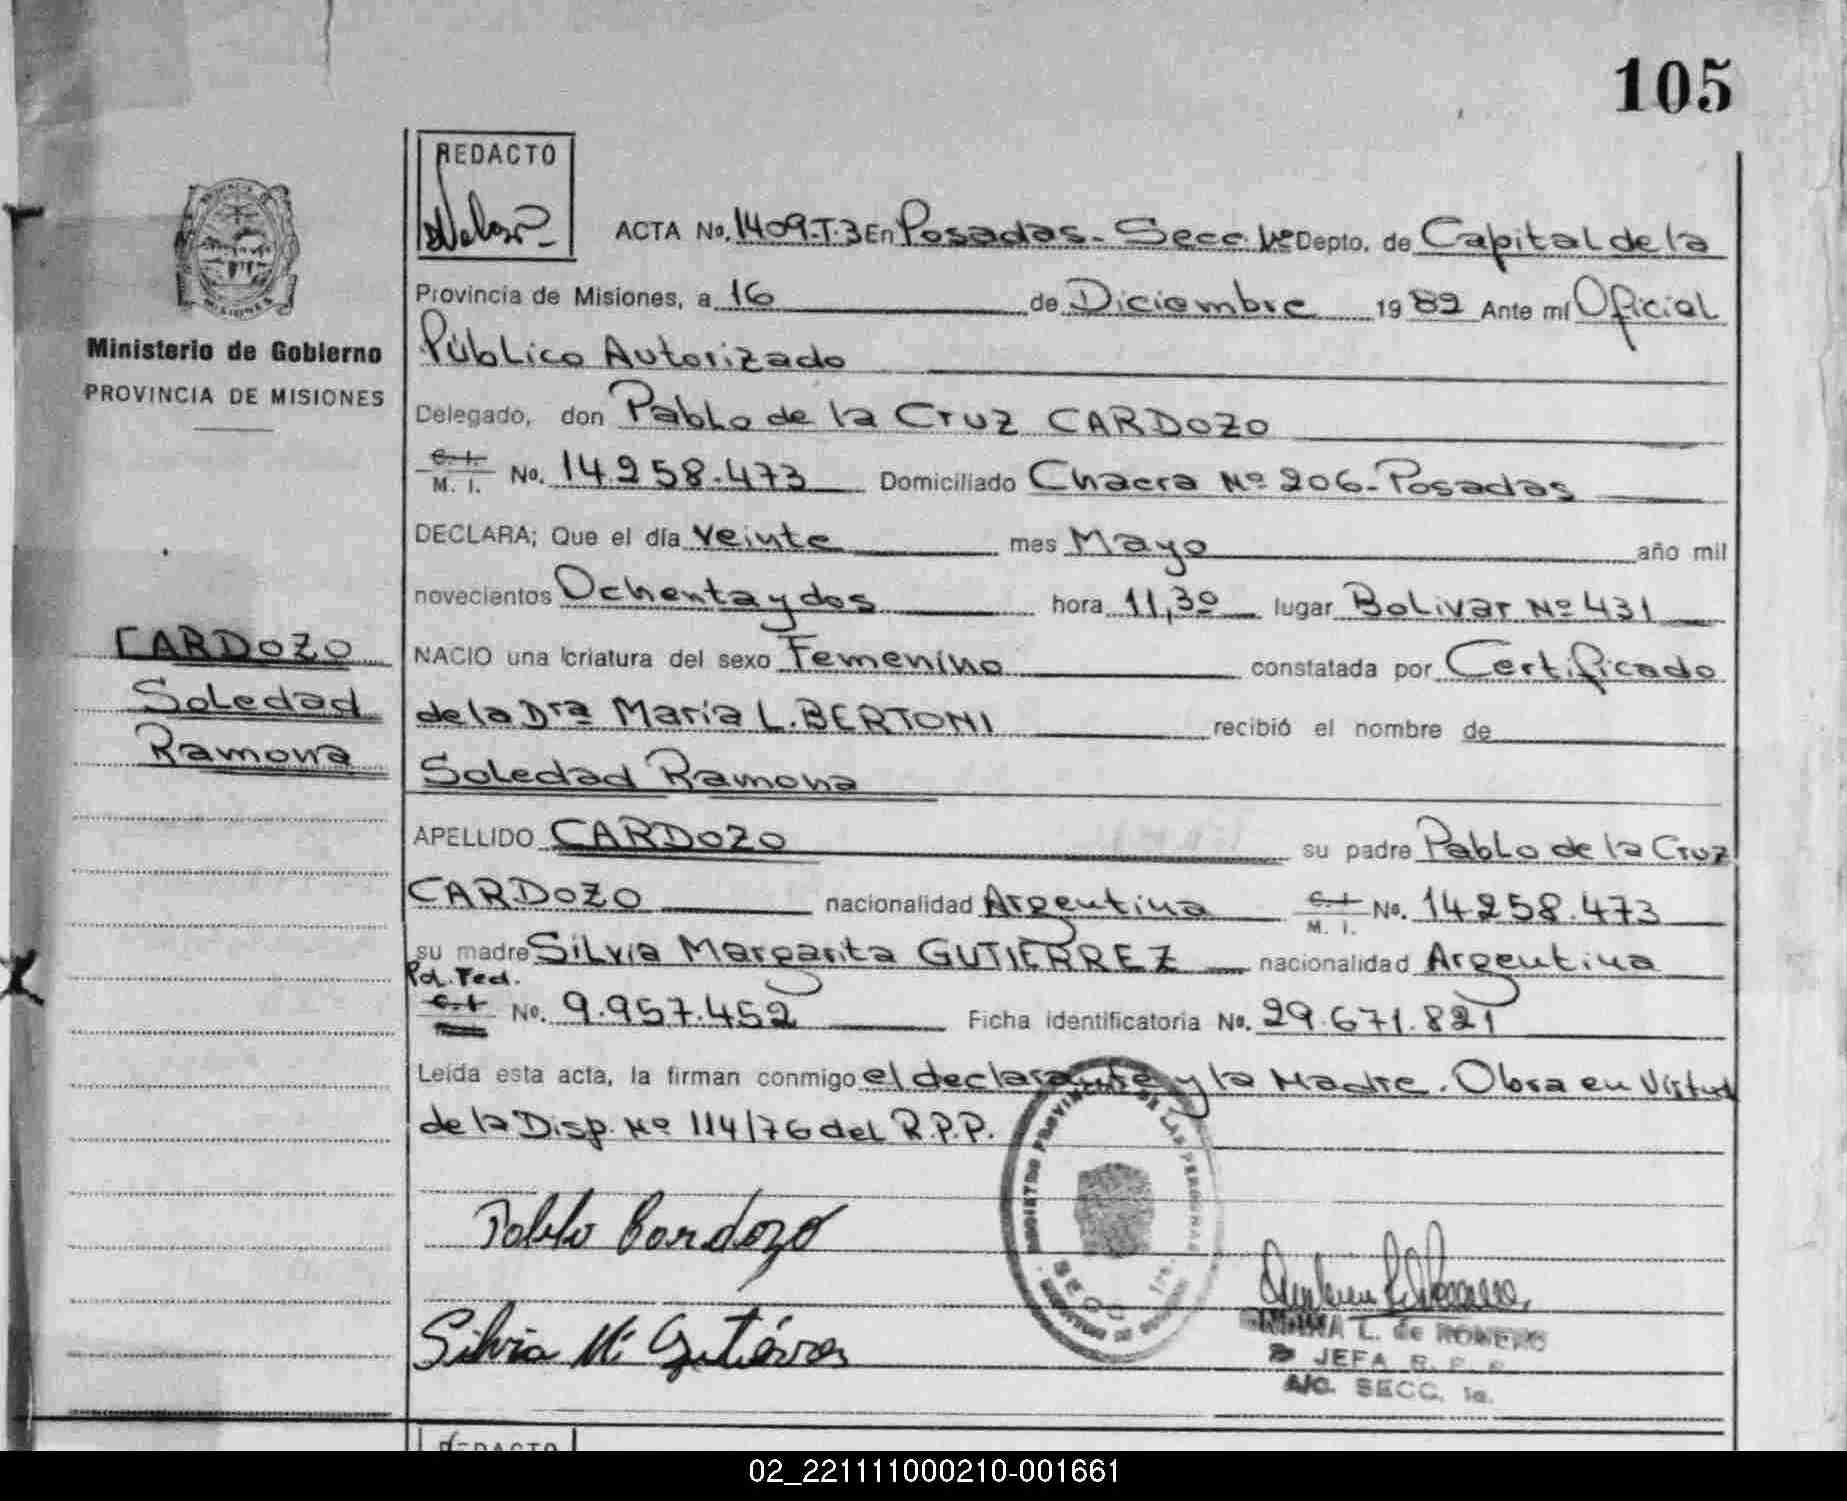 105
REDACTO
ACTA No. 1409-T.3 En Posadas - Secc. 1ª Depto. de Capital de la
Provincia de Misiones, a 16 de Diciembre 1982 Ante mí Oficial
Ministerio de Gobierno
PROVINCIA DE MISIONES
Público Autorizado
Delegado, don Pablo de la Cruz CARDOZO
C. I.
M. I. No. 14.258.473 Domiciliado Chacra Nº 206 - Posadas
DECLARA; Que el día veinte mes Mayo año mil
novecientos Ochenta y dos hora 11,30 lugar Bolivar Nº 431
CARDOZO
Soledad
Ramona
NACIO una criatura del sexo Femenino constatada por Certificado
de la Drª María L. BERTONI recibió el nombre de
Soledad Ramona
APELLIDO CARDOZO su padre Pablo de la Cruz
CARDOZO nacionalidad Argentina C. I. M. I. No. 14.258.473
su madre Silvia Margarita GUTIERREZ nacionalidad Argentina
Pol. Fed.
C. I. No. 9.957.452 Ficha identificatoria No. 29.671.821
Leída esta acta, la firman conmigo el declarante y la Madre. Obra en Virtud
de la Disp. Nº 114/76 del R.P.P.
REGISTRO PROVINCIAL DE LAS PERSONAS
SECC
Pablo Cardozo
Silvia M. Gutiérrez
L. de ROMERO
JEFA R. P. P.
A/C. SECC. 1a.
REDACTO
02_221111000210-001661